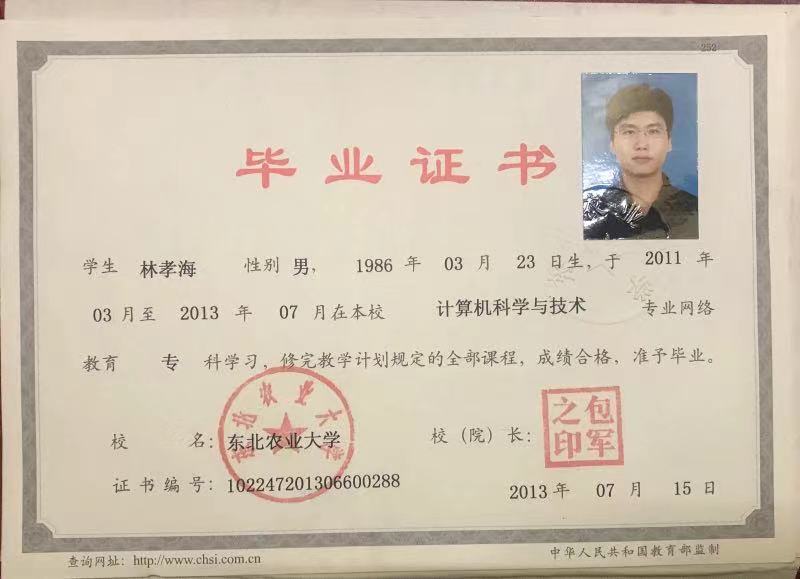 252
毕业证书
学生 林孝海 性别 男， 1986 年 03 月 23 日生，于 2011 年
03 月至 2013 年 07 月在本校 计算机科学与技术 专业网络
教育 专 科学习，修完教学计划规定的全部课程，成绩合格，准予毕业。
校 名：东北农业大学 校（院）长：
东北农业大学
包军之印
证书编号：102247201306600288
2013 年 07 月 15 日
查询网址：http://www.chsi.com.cn
中华人民共和国教育部监制